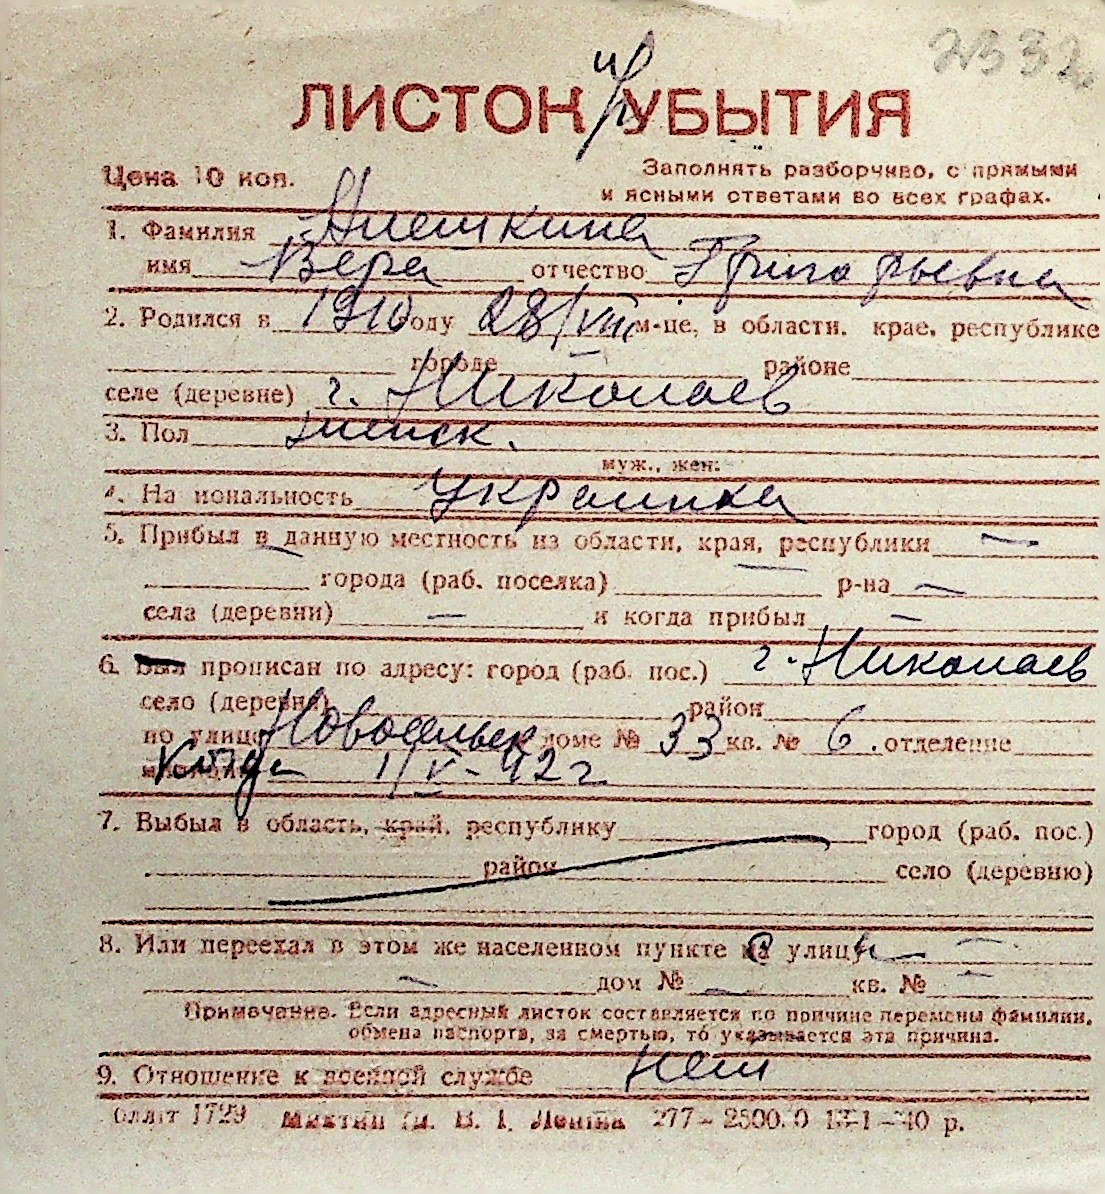 2332
ЛИСТОК УБЫТИЯ
Цена 10 коп.
Заполнять разборчиво, с прямыми
и ясными ответами во всех графах.
1. Фамилия
имя Вера отчество Григорьевна
2. Родился в 1910 году 28/VIII м-це, в области, крае, республике
городе районе
селе (деревне) г. Николаев
3. Пол женск.
муж., жен.
4. Национальность украинка
5. Прибыл в данную местность из области, края, республики —
города (раб. поселка) — р-на —
села (деревни) — и когда прибыл —
6. Был прописан по адресу: город (раб. пос.) г. Николаев
село (деревня) район
по улице доме № 33 кв. № 6. отделение
милиции Когда 1/V-42 г.
7. Выбыл в область, край, республику город (раб. пос.)
район село (деревню)
8. Или переехал в этом же населенном пункте с улицы —
дом № — кв. № —
Примечание. Если адресный листок составляется по причине перемены фамилии,
обмена паспорта, за смертью, то указывается эта причина.
9. Отношение к военной службе Нет
1729 им. В. І. Леніна 277—2500.0 —40 р.